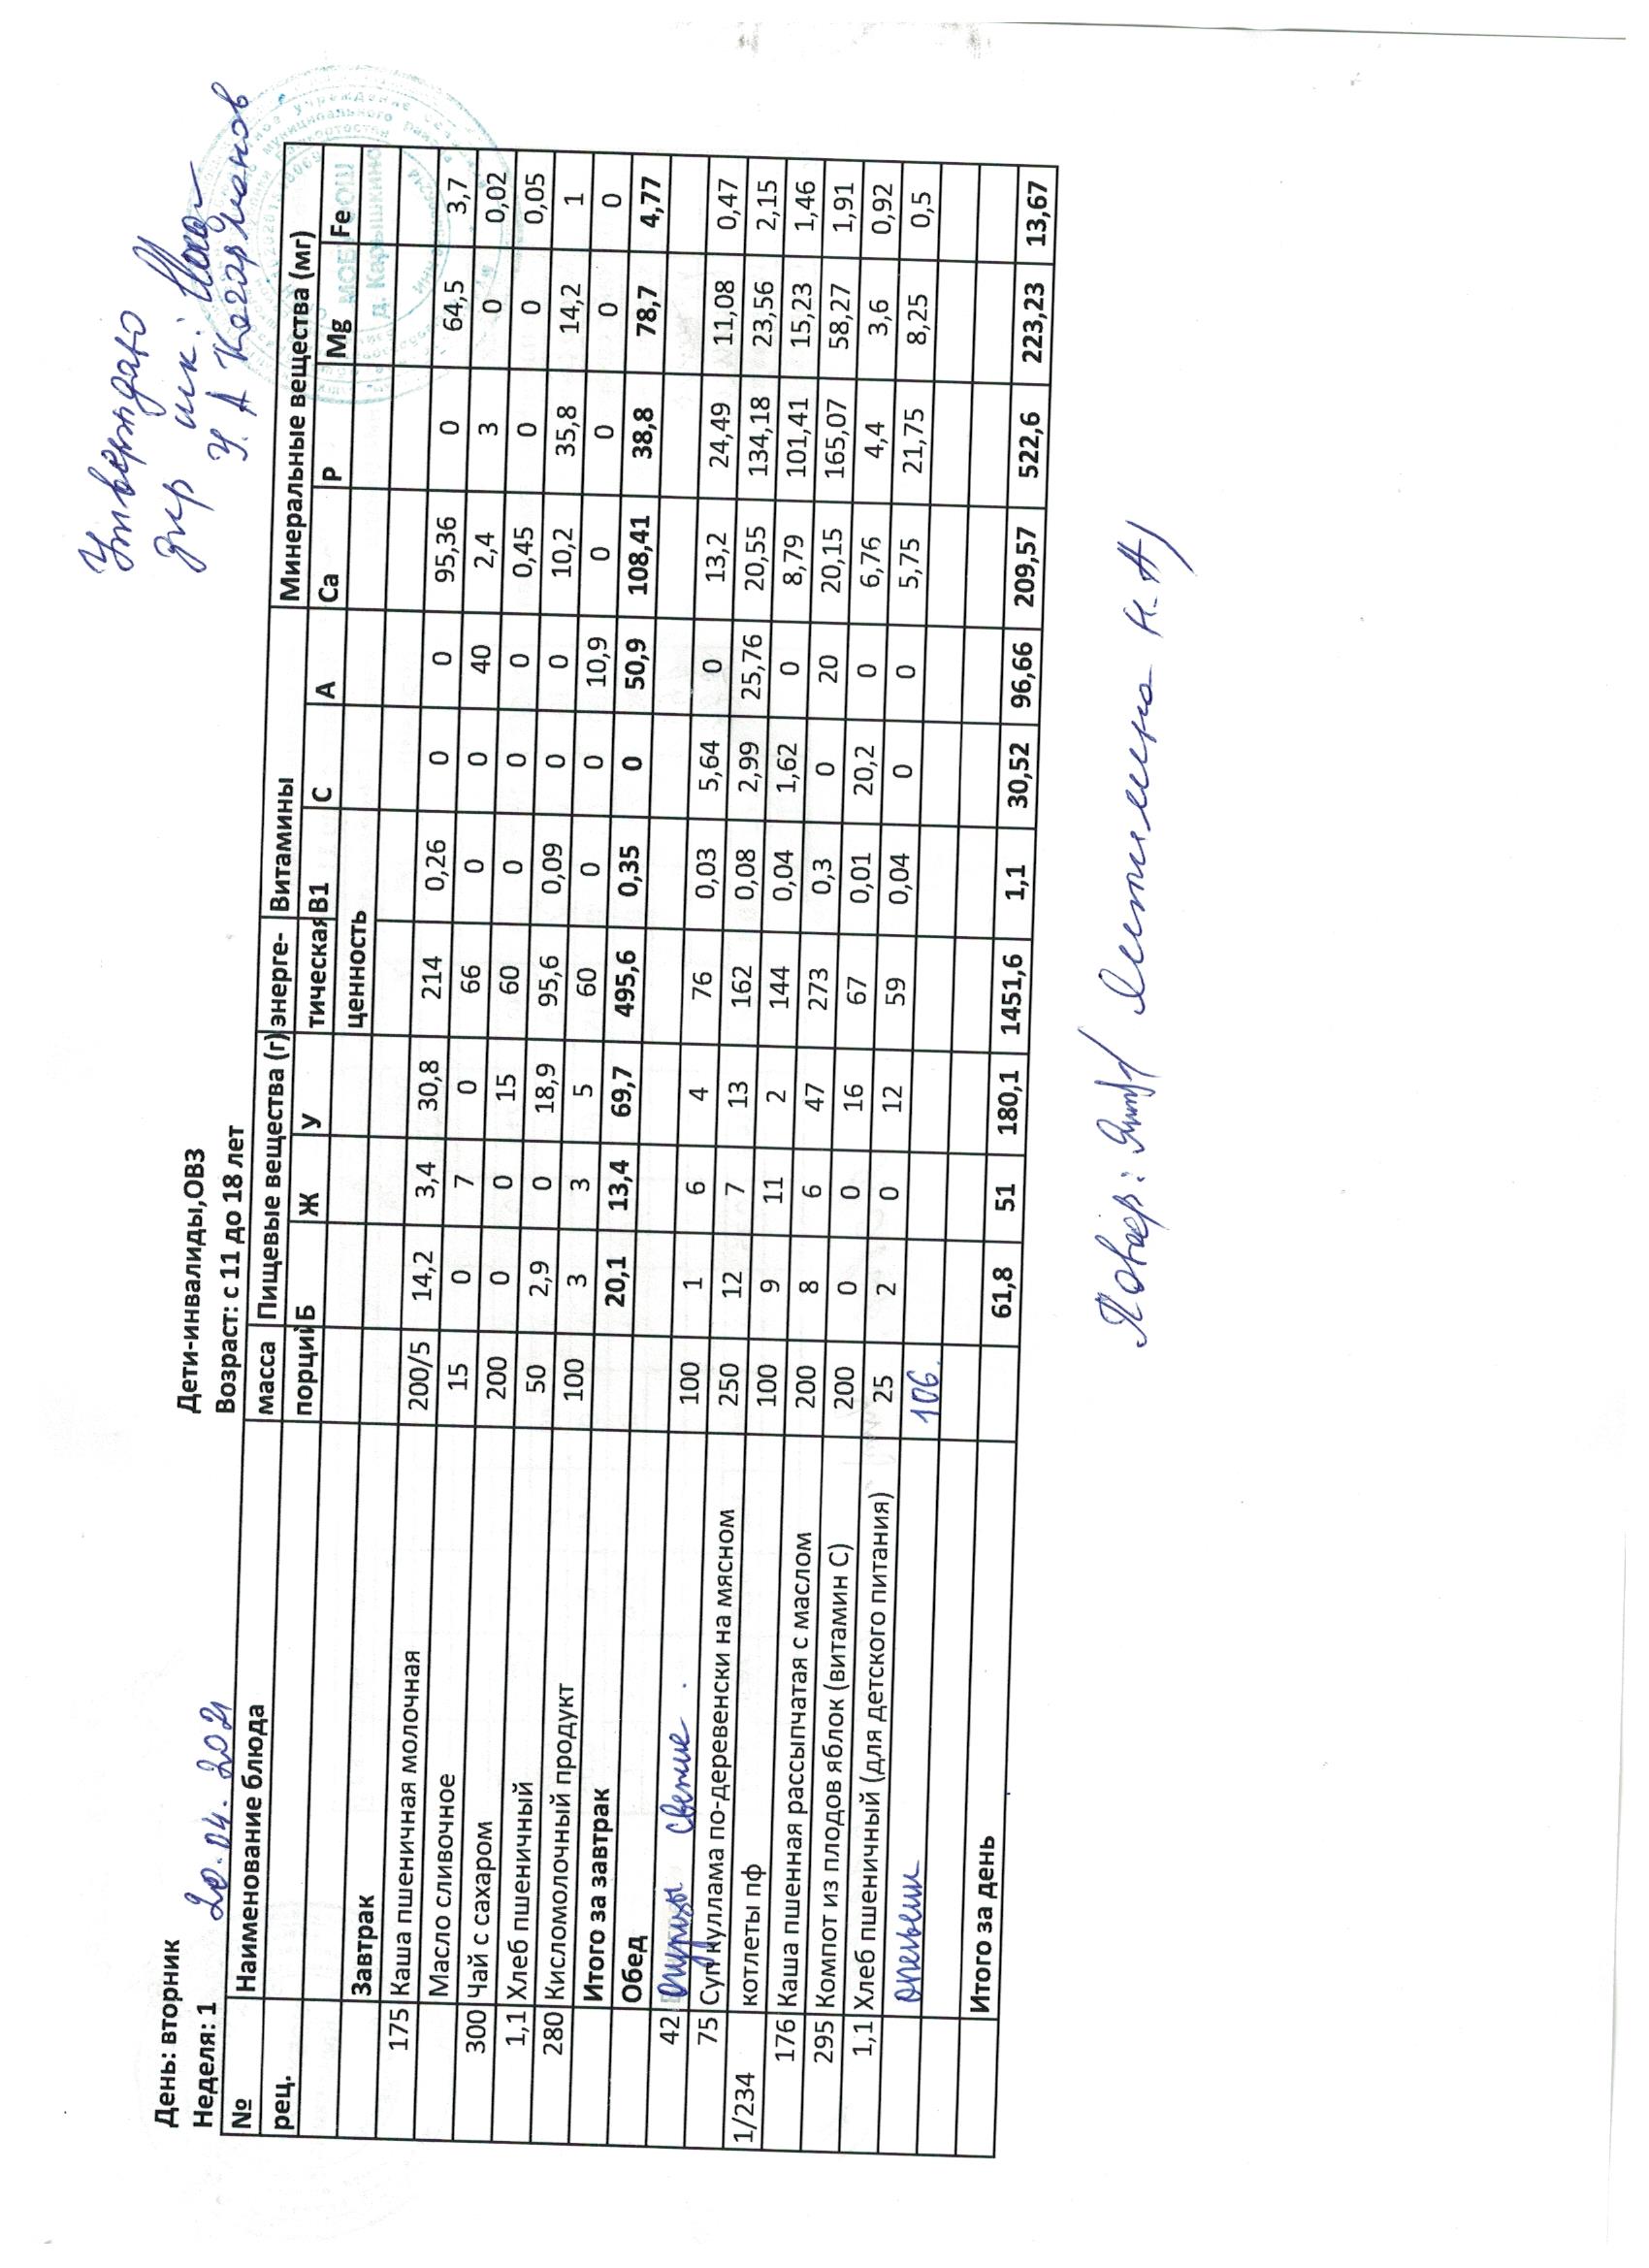 Утверждаю
дир шк:
У. А Кагарманов
День: вторник
Дети-инвалиды,ОВЗ
Неделя: 1 20.04.2021 Возраст: с 11 до 18 лет
№ Наименование блюда масса Пищевые вещества (г) энерге- Витамины Минеральные вещества (мг)
рец. порций Б Ж У тическая В1 С А Ca P Mg Fe
ценность
Завтрак
175 Каша пшеничная молочная 200/5 14,2 3,4 30,8 214 0,26 0 0 95,36 0 64,5 3,7
Масло сливочное 15 0 7 0 66 0 0 40 2,4 3 0 0,02
300 Чай с сахаром 200 0 0 15 60 0 0 0 0,45 0 0 0,05
1,1 Хлеб пшеничный 50 2,9 0 18,9 95,6 0,09 0 0 10,2 35,8 14,2 1
280 Кисломолочный продукт 100 3 3 5 60 0 0 10,9 0 0 0 0
Итого за завтрак 20,1 13,4 69,7 495,6 0,35 0 50,9 108,41 38,8 78,7 4,77
Обед
42 огурцы свежие. 100 1 6 4 76 0,03 5,64 0 13,2 24,49 11,08 0,47
75 Суп куллама по-деревенски на мясном 250 12 7 13 162 0,08 2,99 25,76 20,55 134,18 23,56 2,15
1/234 котлеты пф 100 9 11 2 144 0,04 1,62 0 8,79 101,41 15,23 1,46
176 Каша пшенная рассыпчатая с маслом 200 8 6 47 273 0,3 0 20 20,15 165,07 58,27 1,91
295 Компот из плодов яблок (витамин С) 200 0 0 16 67 0,01 20,2 0 6,76 4,4 3,6 0,92
1,1 Хлеб пшеничный (для детского питания) 25 2 0 12 59 0,04 0 0 5,75 21,75 8,25 0,5
апельсин 106.
Итого за день 61,8 51 180,1 1451,6 1,1 30,52 96,66 209,57 522,6 223,23 13,67
Повар:
МОБУ СОШ
д. Карышкино